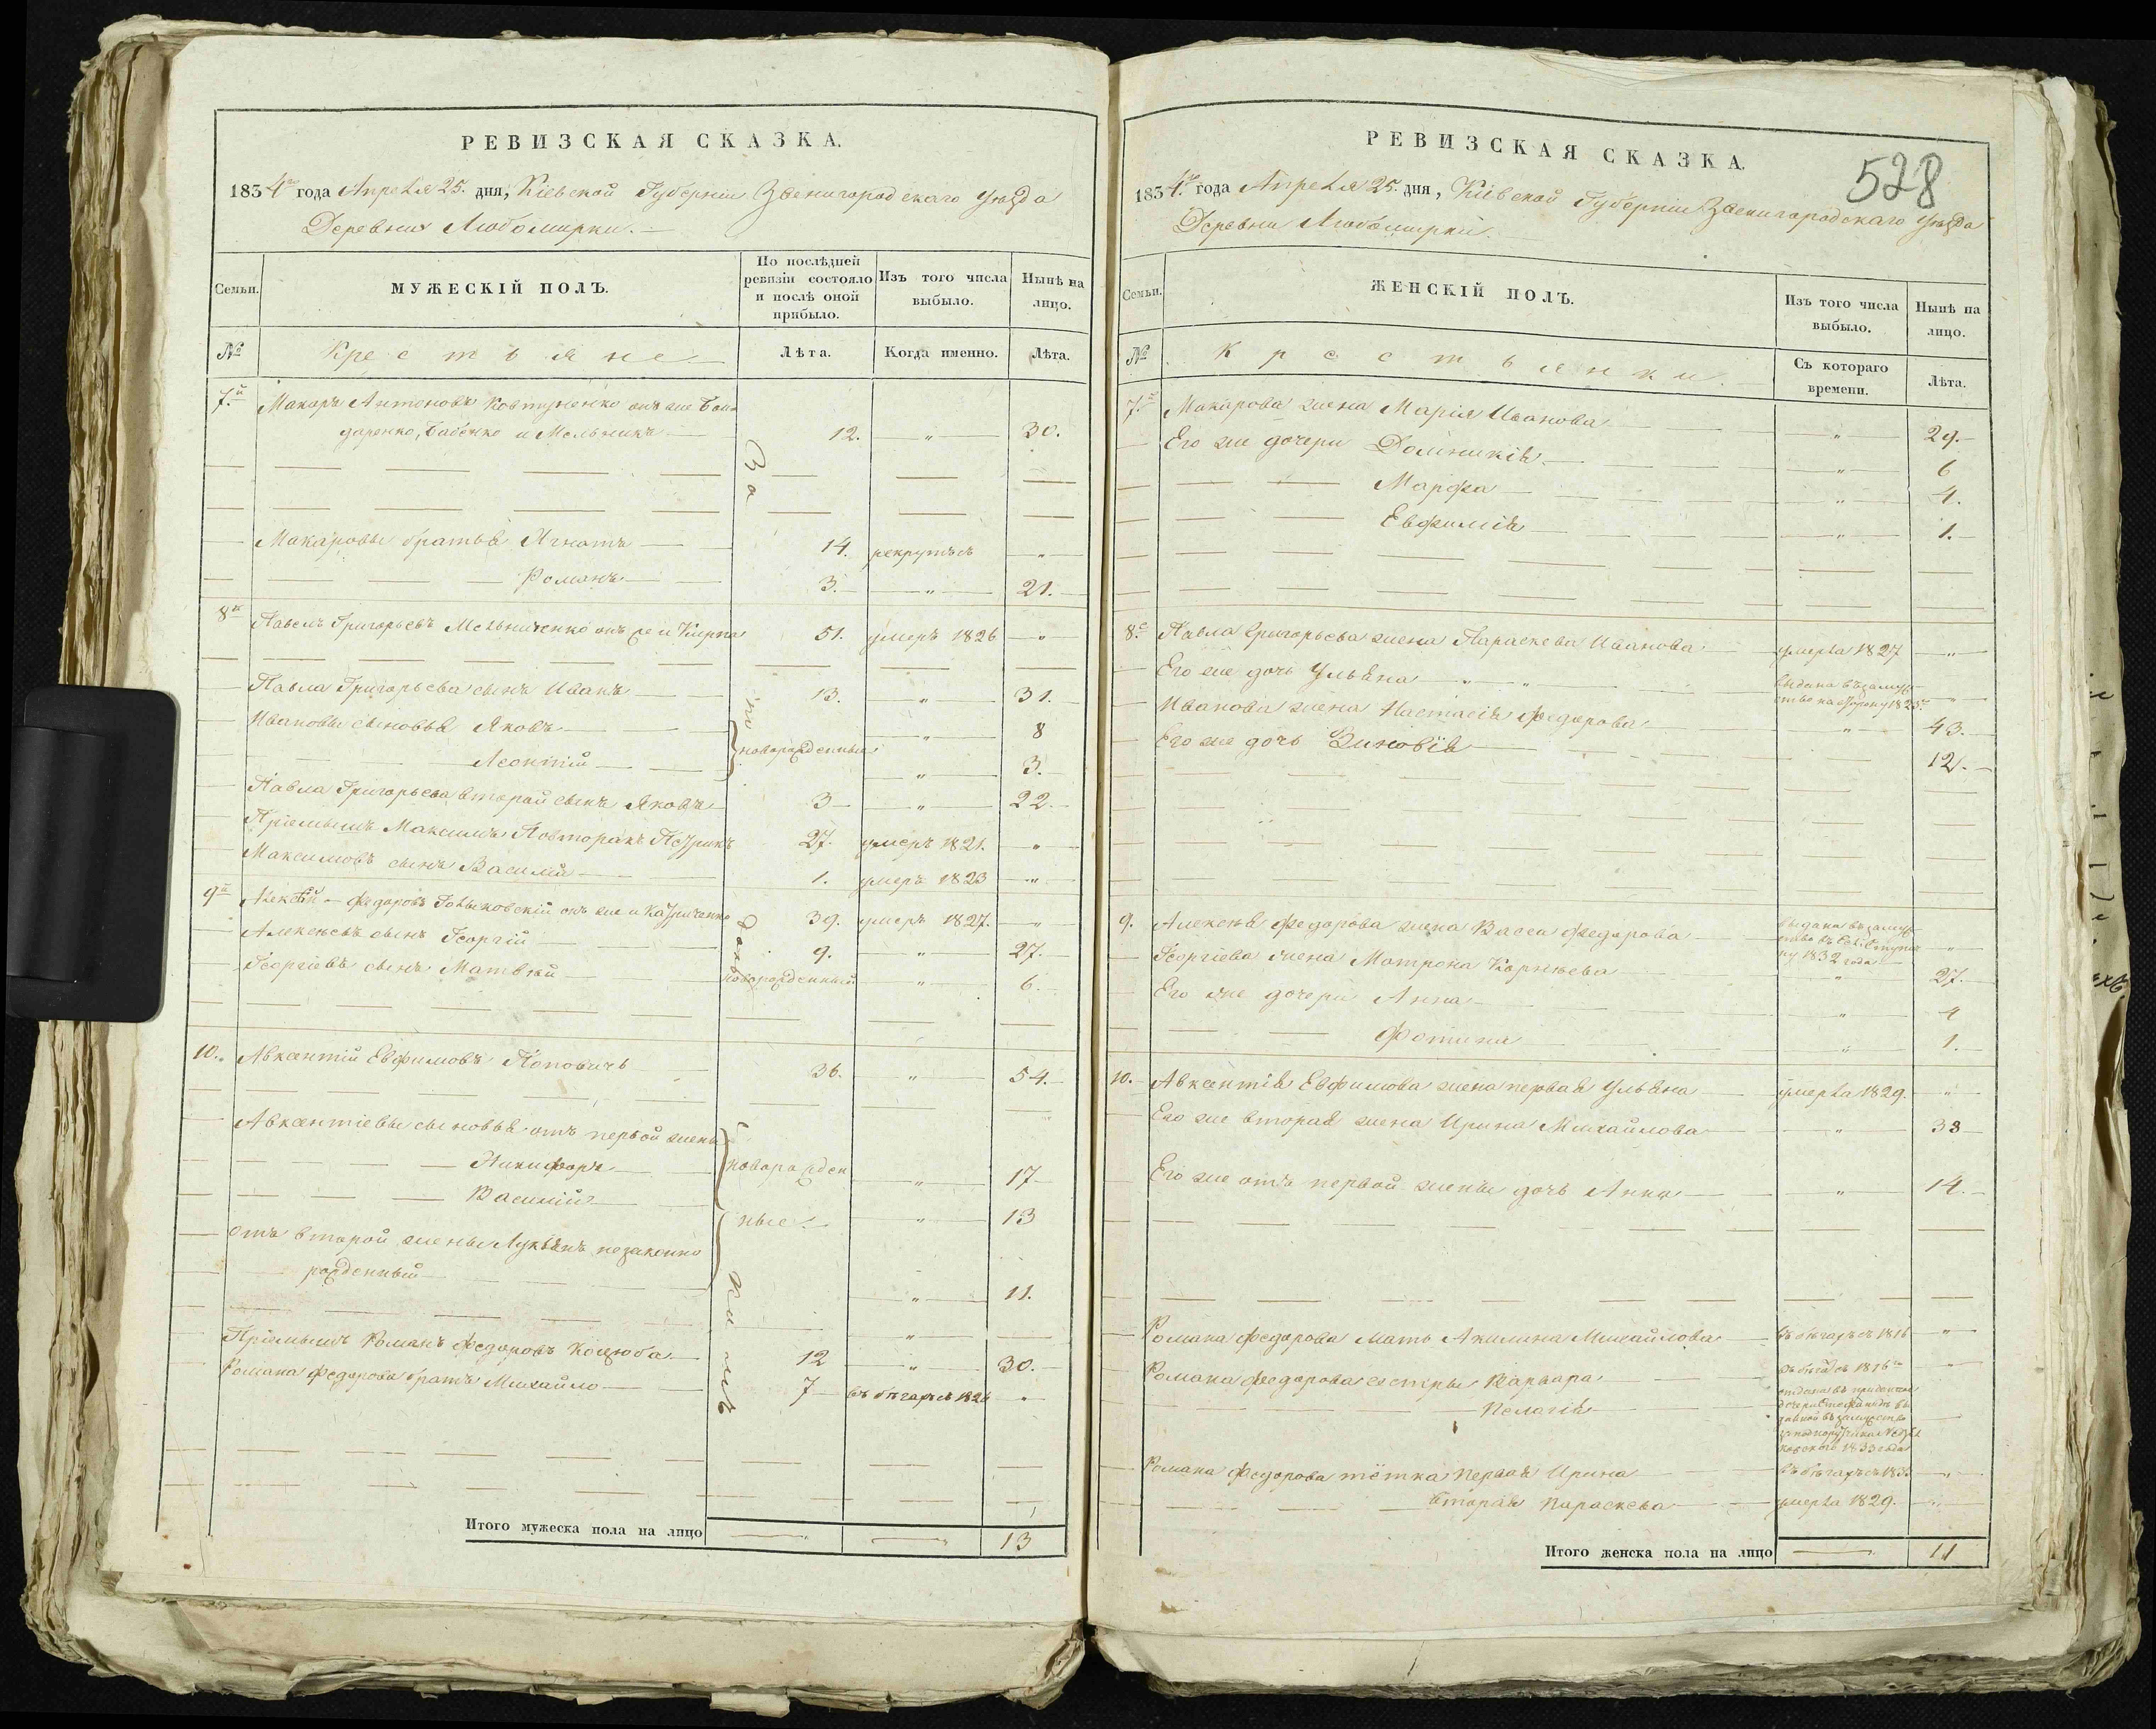 РЕВИЗСКАЯ СКАЗКА.
1834го года Апреля 25. дня, Кіевской Губерніи Звенигородскаго Уѣзда
Деревни Любомирки.
Семьи. МУЖЕСКІЙ ПОЛЪ. По послѣдней ревизіи состояло и послѣ оной прибыло. Изъ того числа выбыло. Нынѣ на лицо.
№ Крестьяне Лѣта. Когда именно. Лѣта.
7й Макаръ Антоновъ Ковтуненко онъ же Бон-
даренко, Бабенко и Мельникъ 12. " 30.
Макаровы братья Игнатъ 14. рекрутъ "
Романъ 3. " 21.
8й Павелъ Григорьевъ Мельниченко онъ же и Кирпа 51. умеръ 1826 "
Павла Григорьева сынъ Иванъ 13. " 31.
Ивановы сыновья Яковъ " 8
новорожденные
Леонтій " 3.
Павла Григорьева второй сынъ Яковъ 3 " 22.
Пріемышъ Максимъ Повторакъ 27. умеръ 1821. "
Максимовъ сынъ Василій 1. умеръ 1823 "
9й Алексѣй Федоровъ онъ же и 39. умеръ 1827. "
Алексѣевъ сынъ Георгій 9. " 27.
Георгіевъ сынъ Матвѣй новорожденный " 6.
10. Авксентій Евфимовъ Поповичъ 36. " 54.
Авксентіевы сыновья отъ первой жены
Никифоръ новорожден " 17
Василій ные " 13
отъ второй жены Лукьянъ незаконно
рожденный " 11.
Пріемышъ Романъ Федоровъ Коцюба 12 " 30.
Романа Федорова братъ Михайло 7 въ бѣгахъ съ 1826 "
Итого мужеска пола на лицо 13
528
РЕВИЗСКАЯ СКАЗКА.
1834го года Апреля 25. дня, Кіевской Губерніи Звенигородскаго Уѣзда
Деревни Любомирки.
Семьи. ЖЕНСКІЙ ПОЛЪ. Изъ того числа выбыло. Нынѣ на лицо.
№ Крестьянки. Съ котораго времени. Лѣта.
7й Макарова жена Марія Иванова " 29.
Его же дочери Домникія " 6
Марфа " 4.
Евфимія " 1.
8й Павла Григорьева жена Параскева Иванова умерла 1827 "
Его же дочь Ульяна выдана въ замуж-
ство на сторону 1825
Иванова жена Настасія Федорова " 43.
Его же дочь Зиновія 12.
9. Алексѣя Федорова жена Васса Федорова выдана въ замуж-
ство 1832 года "
Георгіева жена Матрона Корнѣева " 27.
Его же дочери Анна " 4
Фотина " 1.
10. Авксентія Евфимова жена первая Ульяна умерла 1829. "
Его же вторая жена Ирина Михайлова " 33
Его же отъ первой жены дочь Анна " 14.
Романа Федорова мать Акилина Михайлова въ бѣгахъ съ 1816 "
Романа Федорова сестры Варвара въ бѣгахъ съ 1816 "
Пелагія отдана въ приданное дочери
въ замужство 1833 года
Романа Федорова тётка первая Ирина въ бѣгахъ съ "
вторая Параскева умерла 1829. "
Итого женска пола на лицо 11
За
по
м